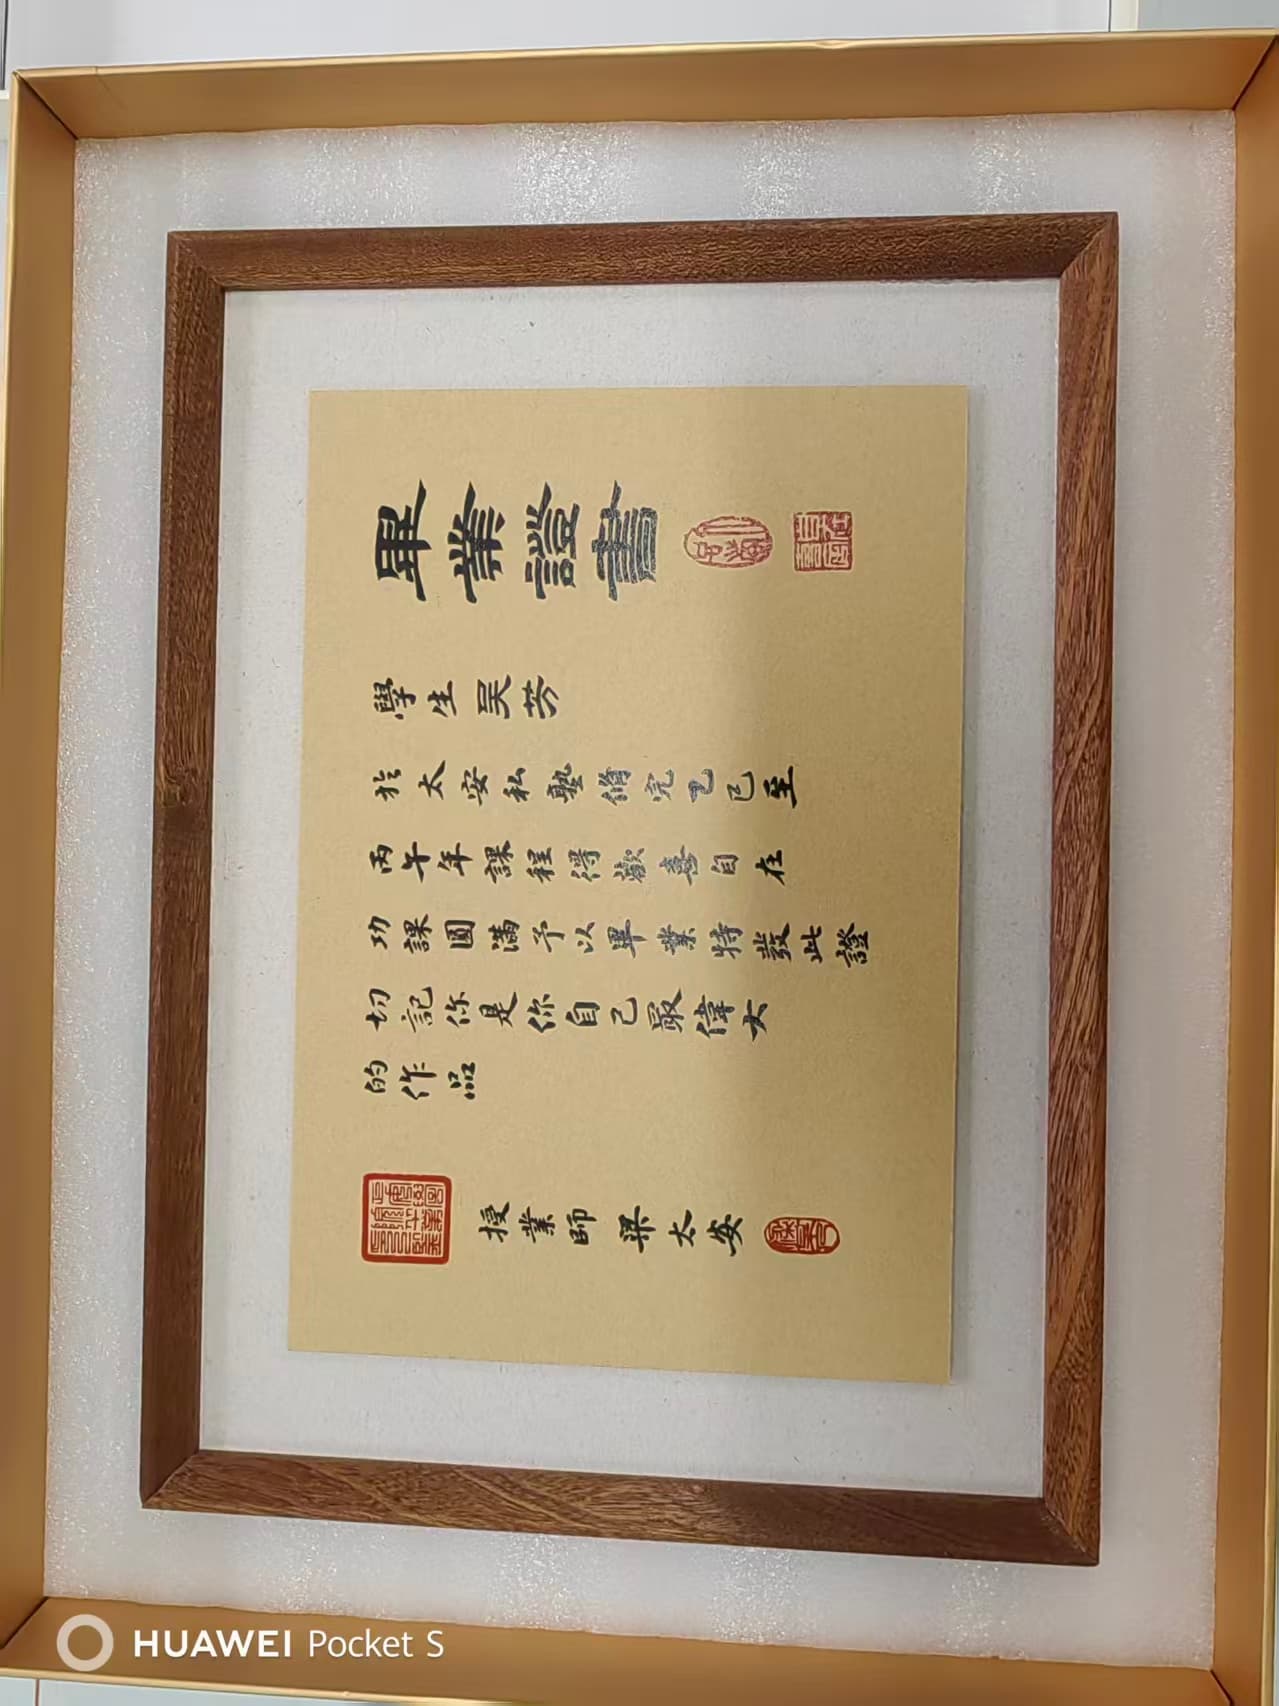 畢業證書
學生吴芳
於太安私塾脩完乙巳至
丙午年課程得歡喜自在
功課圓滿予以畢業特發此證
切記你是你自己最偉大
的作品
授業師 梁太安
HUAWEI Pocket S